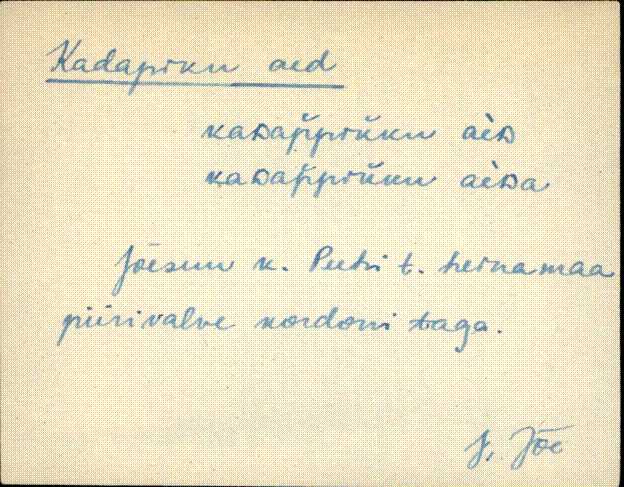 Kadapiku aed
kaᴅap̆pik̆ku aèᴅ
kaᴅap̆pik̆ku aèᴅa
Jõesuu k. Peetri t. heinamaa
piirivalve kordoni taga.
J. Jõe